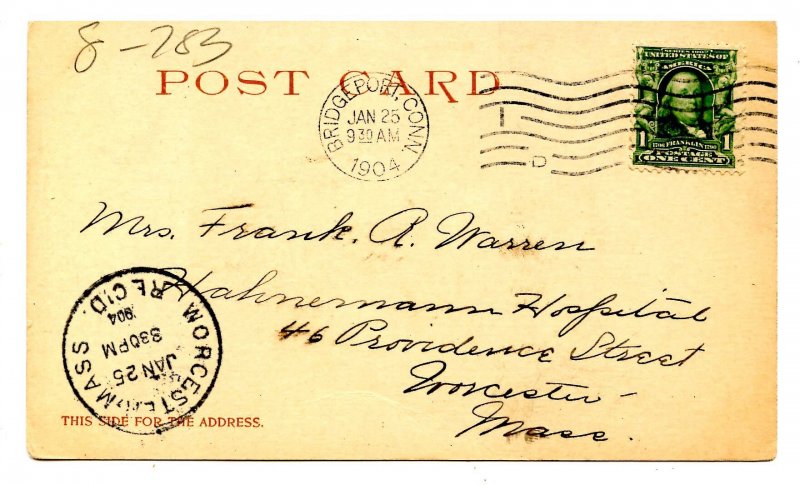 8-783
POST CARD
BRIDGEPORT, CONN.
JAN 25
9 30 AM
1904
1
D
SERIES 1902
UNITED STATES OF
AMERICA
1706 FRANKLIN 1790
1 POSTAGE 1
ONE CENT
Mrs. Frank. A. Warren
Hahnemann Hospital
46 Providence Street
Worcester
Mass.
WORCESTER, MASS.
REC'D.
JAN 25
830PM
1904
THIS SIDE FOR THE ADDRESS.